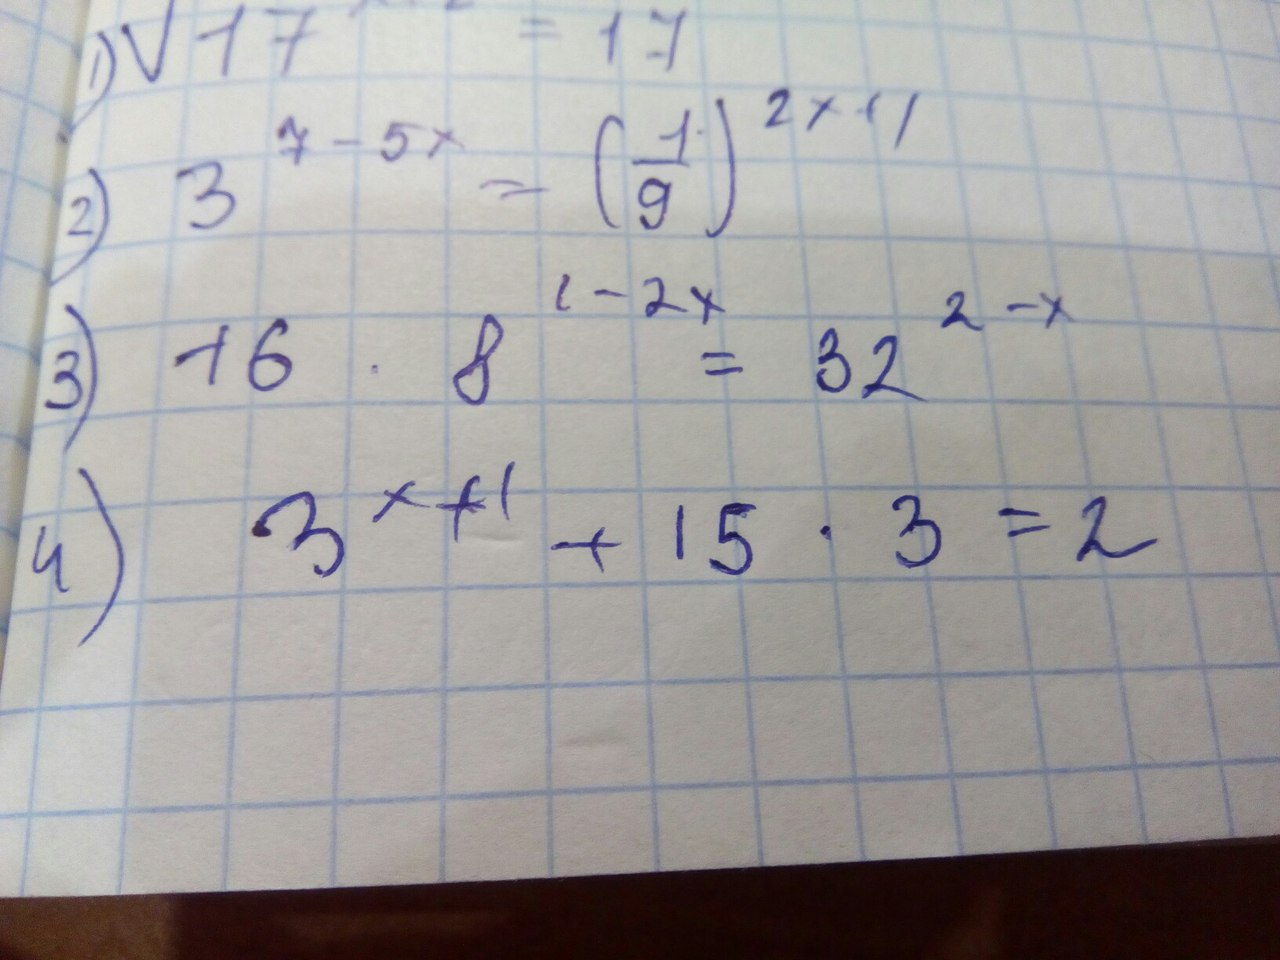 1) √17 = 17
2) 3^(7-5x) = (1/9)^(2x+1)
3) 16 · 8^(1-2x) = 32^(2-x)
4) 3^(x+1) + 15 · 3 = 2